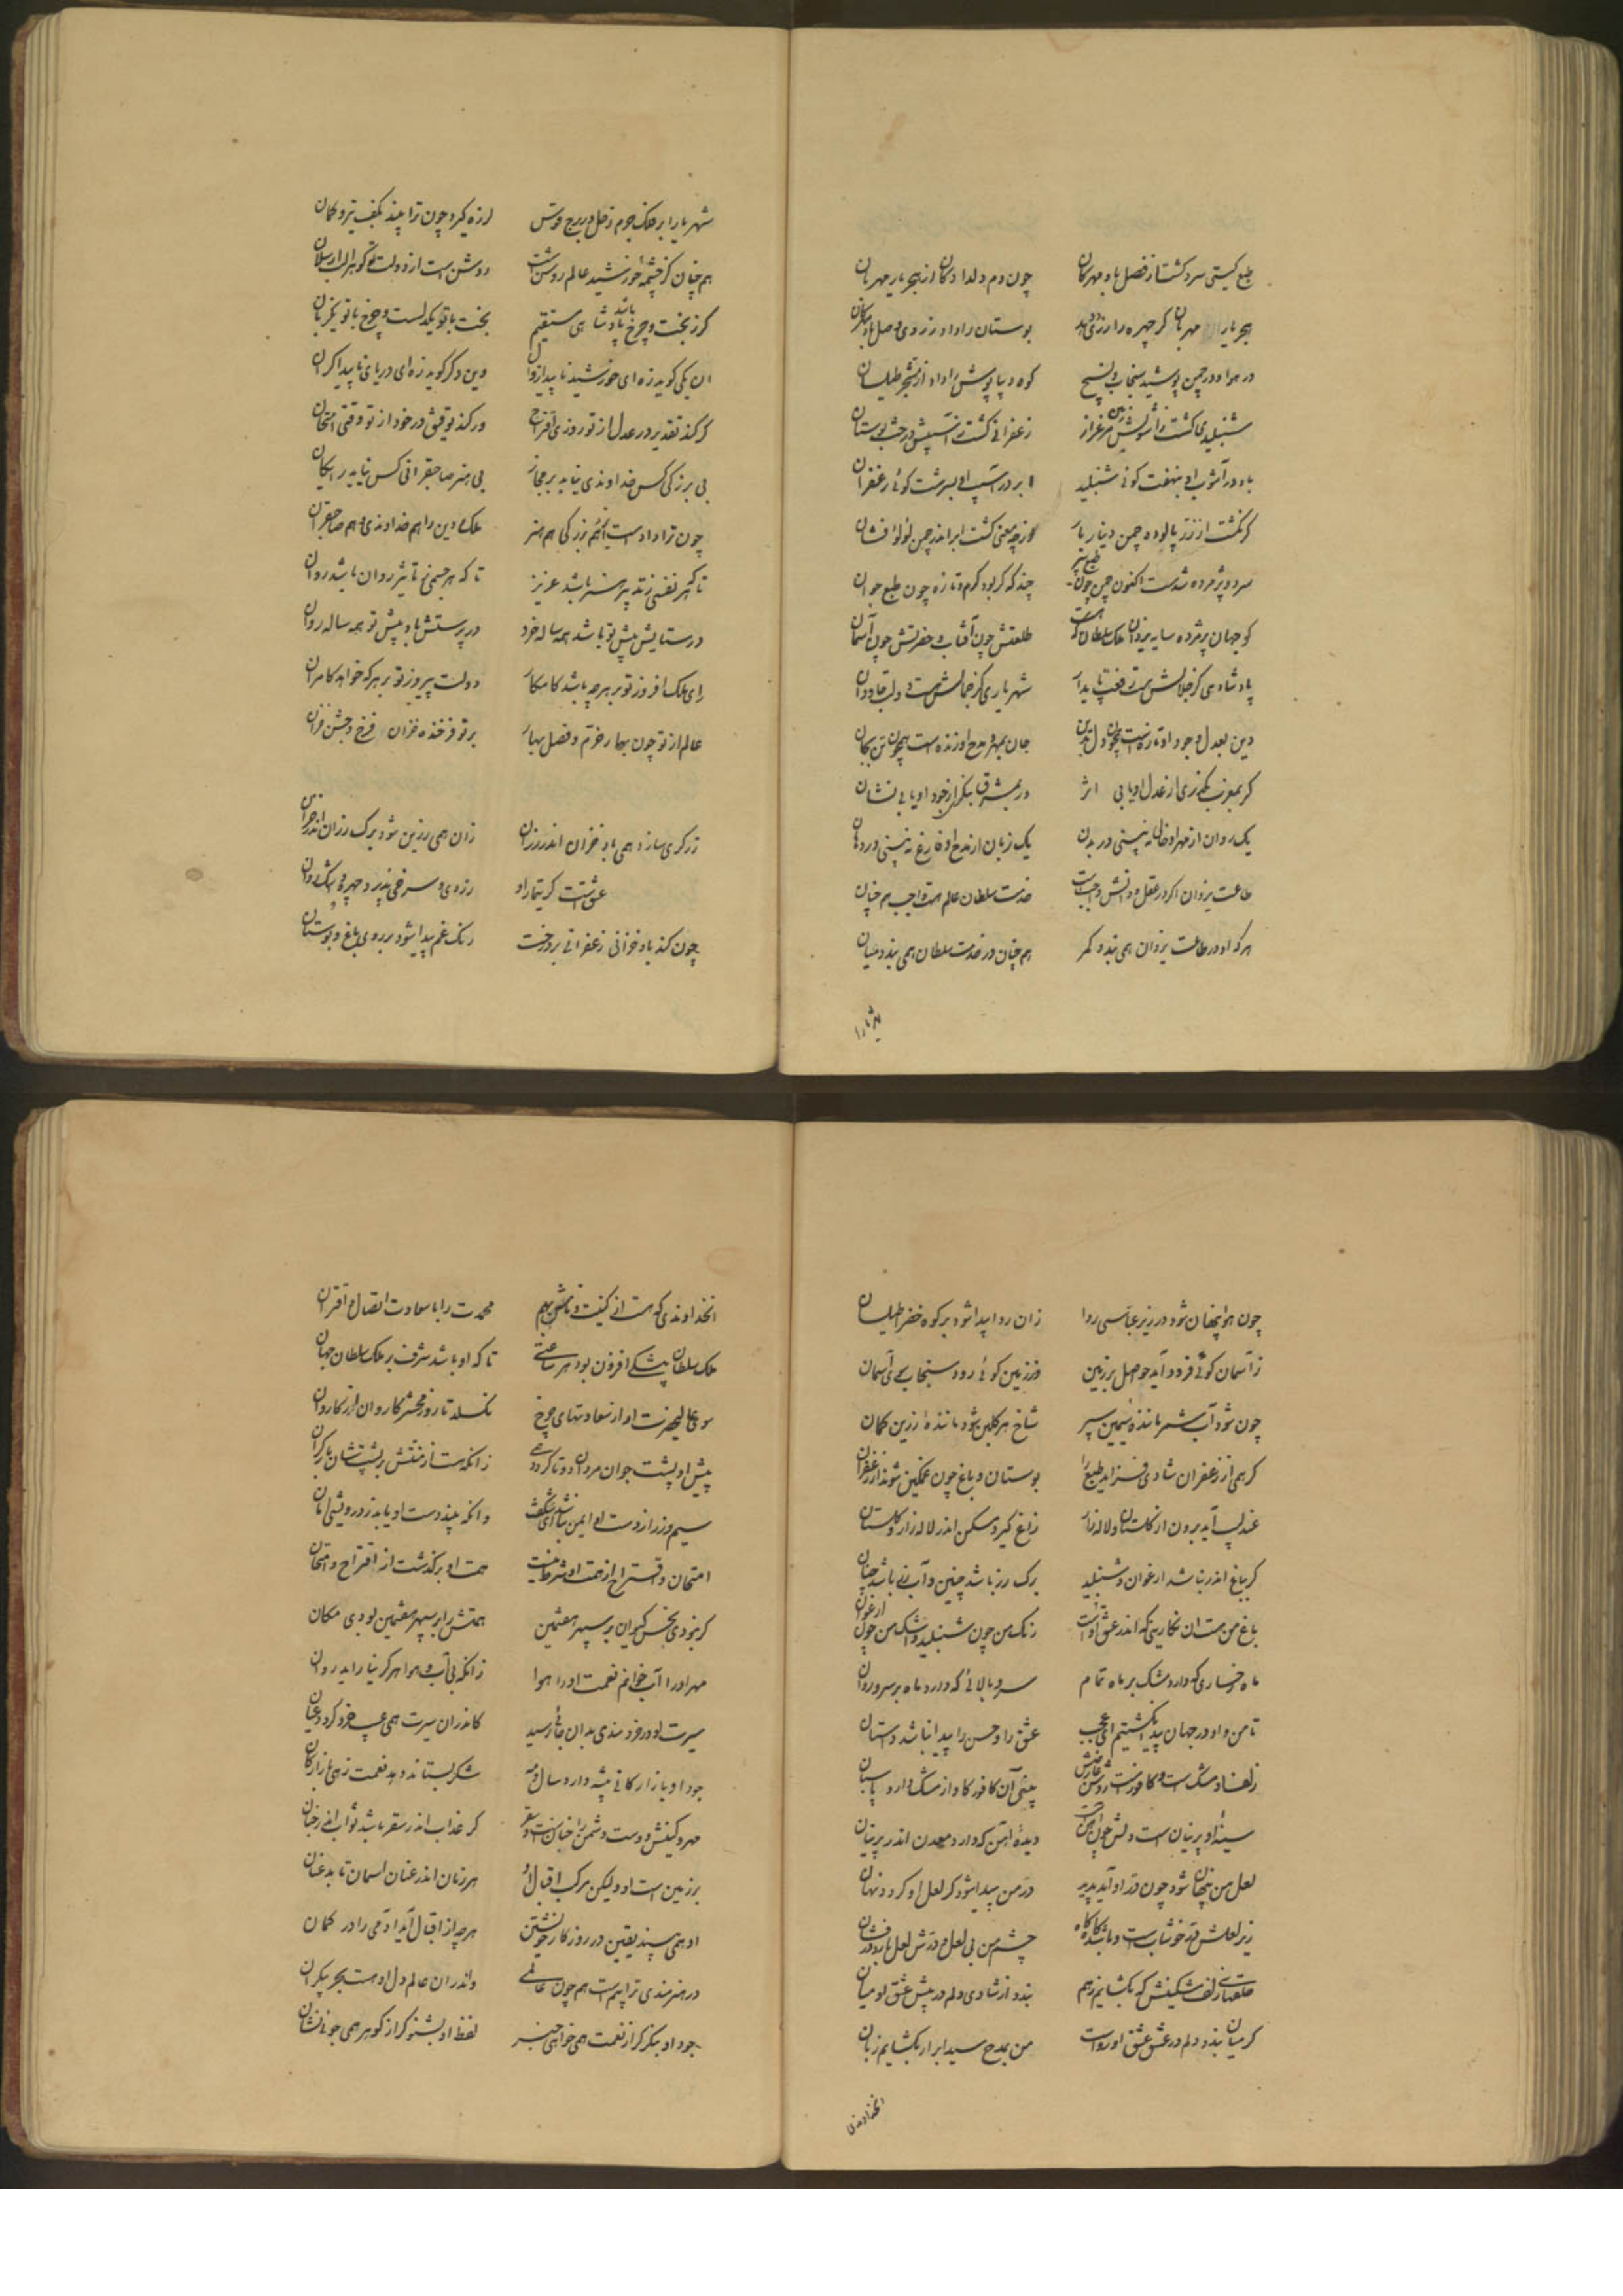 طبع کیتی سرد کشت از فصل باد مهرکان چون دم دلدادکان از هجر یار مهربان
هجر یار مهربان کر چهره را زردی دهد بوستان را داد زردی وصل باد مهرکان
در هوا و در چمن پوشید سنجاب و نسیج کوه دیبا پوش را داد از مشجر طیلسان
شنبلیدی کشت ز آشوبش مرغزار زعفرانی کشت ز آسیبش درخت بوستان
باد در آشوب او بنهفت کوئی شنبلید ابر در آسیب او بسرشت کوئی زعفران
کر نکشت از زر پالوده چمن دینار بار از چه معنی کشت ابر اندر چمن لؤلؤ فشان
سرد و پژمرده شدست اکنون چمن چون طبع پیر چند که کر بود کرم و تازه چون طبع جوان
کو جهان پژمرده سایه یزدان ملک سلطان که هست طلعتش چون آفتاب و حضرتش چون آسمان
پادشاهی کز جلالش هست رفعت پایدار شهریاری کز جمالش هست دولت جاودان
دین بعدل و جود او تازه است همچون دل بدین جان بمهر و مدح او زنده است همچون تن بجان
کر بمغرب بنکری از عدل او یابی اثر در بمشرق بنکری از جود او یابی نشان
یک روان از مهر او خالی نه بینی در بدن یک زبان از مدح او فارغ نه بینی در دهان
طاعت یزدان اکر در عقل و دانش واجبست خدمت سلطان عالم هست واجب هم چنان
هر که او در طاعت یزدان همی بندد کمر هم چنان در خدمت سلطان همی بندد میان
شهریارا
شهریارا بر فلک جرم زحل در برج قوس لرزه کیرد چون ترا بیند بکف تیر و کمان
هم چنان کز چشمه خورشید عالم روشن است روشن است از دولت تو کوهر الب ارسلان
کر ز بخت و چرخ باشد پادشاهی مستقیم بخت با تو یکدلست و چرخ با تو یکزبان
ان یکی کوید زه ای خورشید ناپیدا زوال وین دکر کوید زه ای دریای ناپیدا کران
کر کند تقدیر در عدل از تو روزی اقتراح ور کند توفیق در خود از تو وقتی امتحان
بی بزرکی کس خداوندی نیابد بر مجاز بی هنر صاحبقرانی کس نیابد رایکان
چون ترا دادست ایزد هم بزرکی هم هنر ملک و دین را هم خداوندی و هم صاحبقران
تا که هر نفسی زتدبیر هنر باشد عزیز تا که هر جسمی بتأثیر روان باشد روان
در ستایش پیش تو باشد همه ساله خرد در پرستش باد پیش تو همه ساله روان
رای ملک افروز تو بر هر چه باشد کامکار دولت پیروز تو بر هر که خواهد کامران
عالم از تو چون بهار خرم و فصل بهار بر تو فرخنده خزان و فرخ جشن خزان
زرکری سازد همی باد خزان اندر رزان زان همی زرین شود برک رزان اندر خزان
عشقست کر تیمار او زردی و سرخی پذیرد چهره و اشک روان
چون کند باد خزانی زعفرانی بر درخت رنک غم پیدا شود بر روی باغ و بوستان
چون هوا پنهان شود در زیر عباسی ردا زان ردا پیدا شود بر کوه خضرا طیلسان
ز آسمان کوئی فرود آید حواصل بر زمین وز زمین کوئی رود سنجاب سوی آسمان
چون شود آب شمر مانندهٔ سیمین سپر شاخ هر کلبن شود مانندهٔ زرین کمان
کر همی از زعفران شادی فزاید طبع را بوستان و باغ چون غمکین شوند از زعفران
عندلیب آید برون از کلستان و لاله زار زاغ کیرد مسکن اندر لاله زار و کلستان
کر بباغ اندر نباشد ارغوان و شنبلید برک رز باشد چنین و آب رز باشد چنان
باغ من هست ان نکارینی که اندر عشق اوست رنک من چون شنبلید و اشک من چون ارغوان
ماه رخساری که دارد مشک بر ماه تمام سرو بالائی که دارد ماه بر سرو روان
تا من و او در جهان پیدا نکشتیم ای عجب عشق را و حسن را پیدا نباشد داستان
زلف او مشکست و کافورست روشن عارضش بینی آن کافور کاو از مشک دارد پاسبان
سینهٔ او پرنیان است و دلش چون آهن است دیدهٔ آهن که دارد معدن اندر پرنیان
لعل من پنهان شود چون در او آید پدید در من پیدا شود کر لعل او کردد نهان
زیر لعلش در خوشاب است و باشد کاه کاه چشم من بی لعل و درش لعل بار و درفشان
حلقهای زلف مشکینش که بکشایم ز هم بندد از شادی دلم در پیش عشق او میان
کر میان بندد دلم در عشق او رواست من بمدح سید ابرار بکشایم زبان
انخداوندی
انخداوندی که هست از کنیت و نامش بهم محمدت را با سعادت اتصال و اقتران
ملک سلطان بیشکی افزون بود هر ساعتی تا که او باشد شرف بر ملک سلطان جهان
سوی عالی حضرت او از سعادتهای چرخ نکسلد تا روز محشر کاروان از کاروان
پیش او پشت جوان مردان دوتا کردد همی زانکه هست از منتش بر پشتشان بار کران
سیم و زر از دست او ایمن نباشد ای شکفت وانکه بیند دست او یابد ز درویشی امان
امتحان و اقتراح از همت او شرط نیست همت او برکذشت از اقتراح و امتحان
کر نبودی نحس کیوان بر سپهر هفتمین همتش را بر سپهر هفتمین بودی مکان
مهر او را آب خوانم نعمت او را هوا زانکه بی آب و هوا هرکز نیارامد روان
سیرت او در خردمندی بدان جائی رسید کاندران سیرت همی عیب خرد کردد عیان
جود او بازارکانی پیشه دارد سال و مه شکر بستاند دهد نعمت زهی بازارکان
مهر و کینش دوست و دشمن را چنان است و سقر کر عذاب اندر سقر باشد ثواب اندر جنان
بر زمین است او ولیکن مرکب اقبال او هر زمان اندر عنان اسمان تابد عنان
او همی بیند یقین در روزکار خویشتن هر چه از اقبال آید آدمی را در کمان
در هنرمندی تراهست هم چون عالمی واندران عالم دل او هست بحر بیکران
جود او بنکر کر از نعمت همی خواهی خبر لفظ او بشنو کر از کوهر همی جوئی نشان